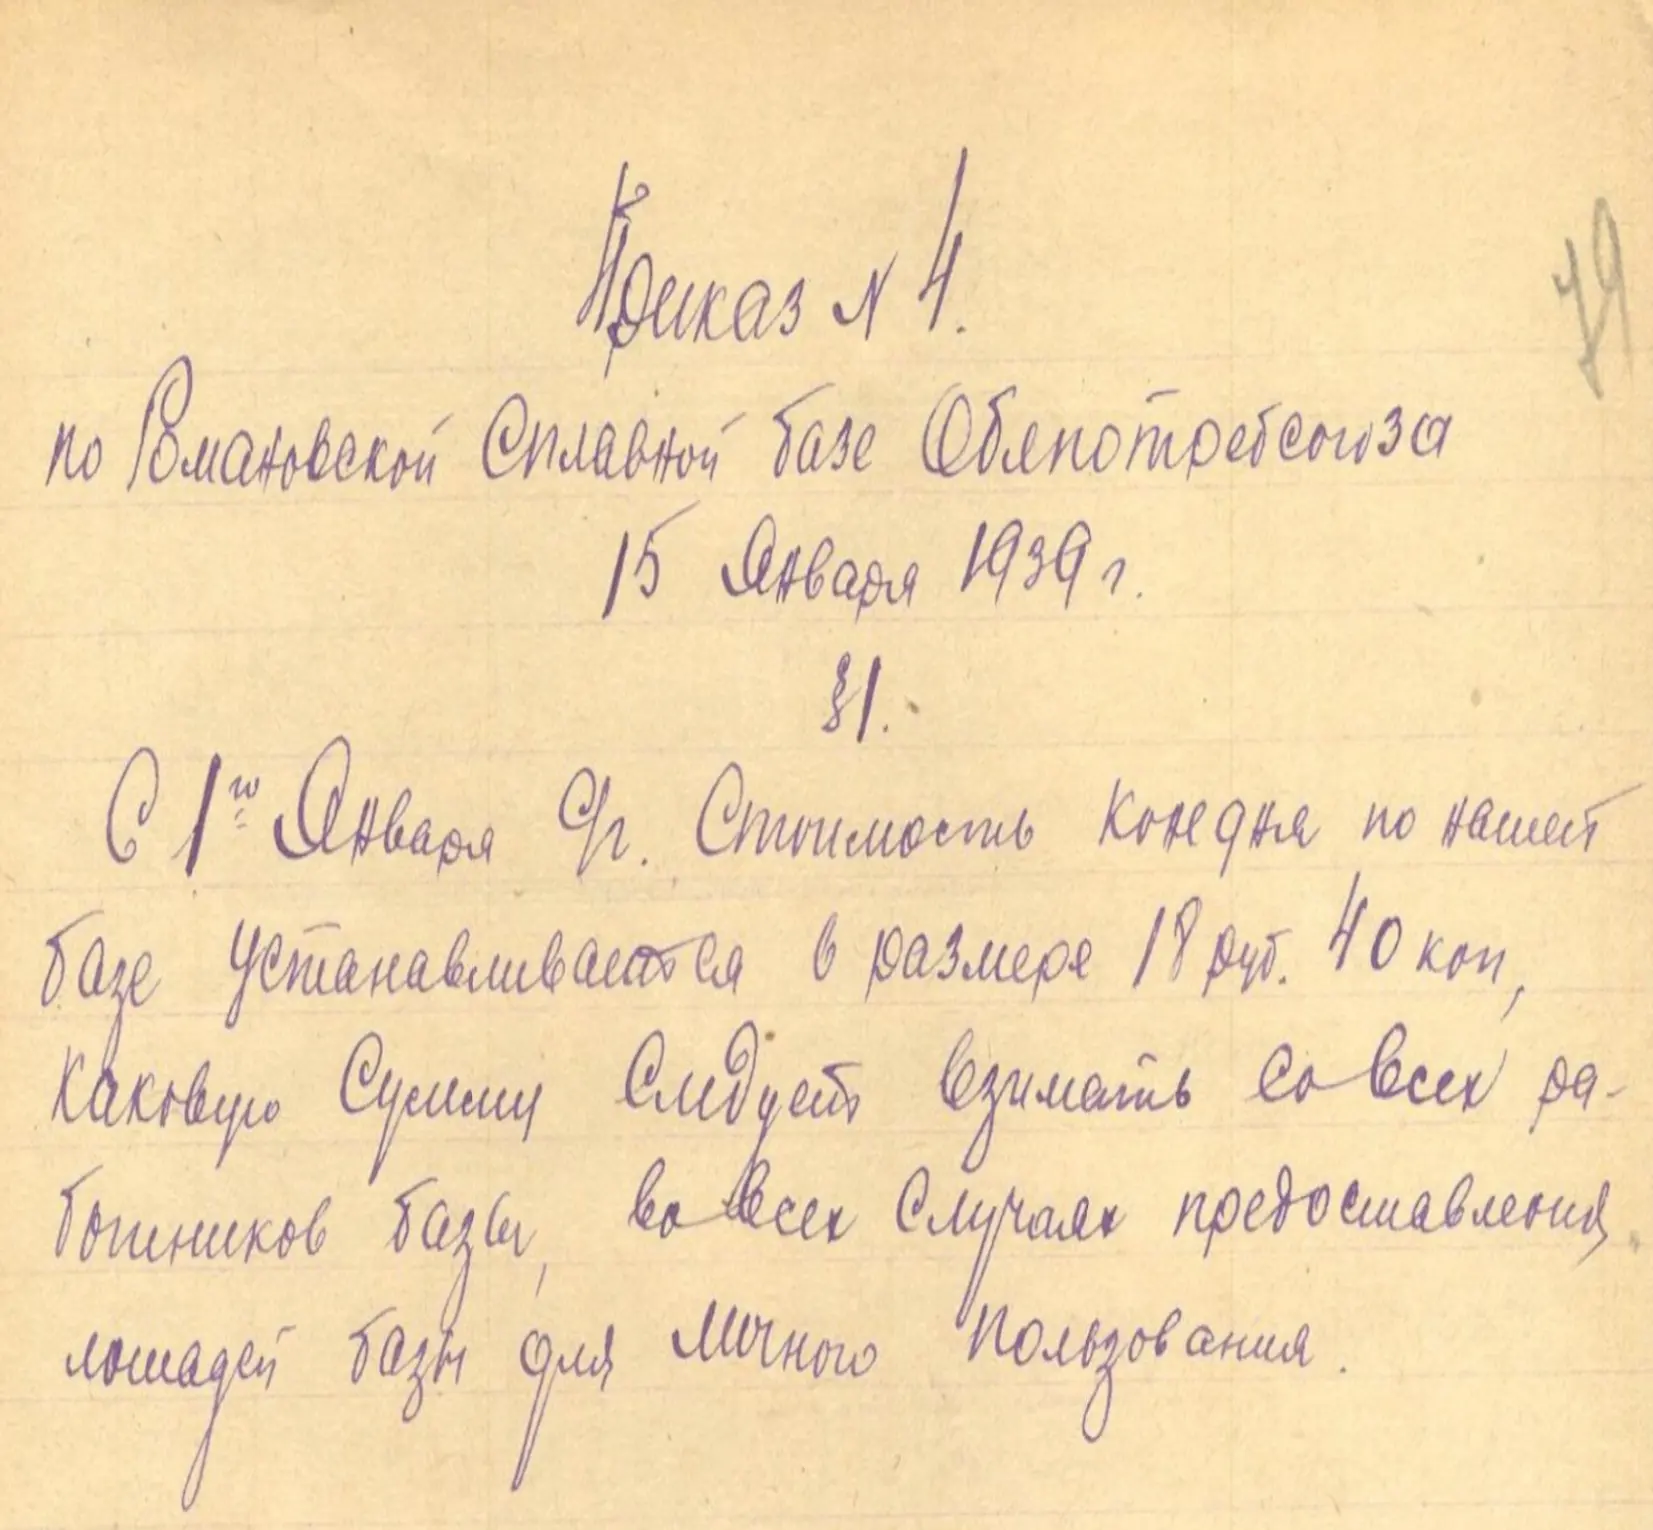 Приказ N 4.
79
по Романовской Сплавной базе Облпотребсоюза
15 Января 1939 г.
§1.
С 1го Января с/г. Стоимость конедня по нашей
базе устанавливается в размере 18 руб. 40 коп,
каковую Сумму Следует взимать со всех ра-
ботников базы, во всех Случаях предоставления
лошадей базы для личного пользования.